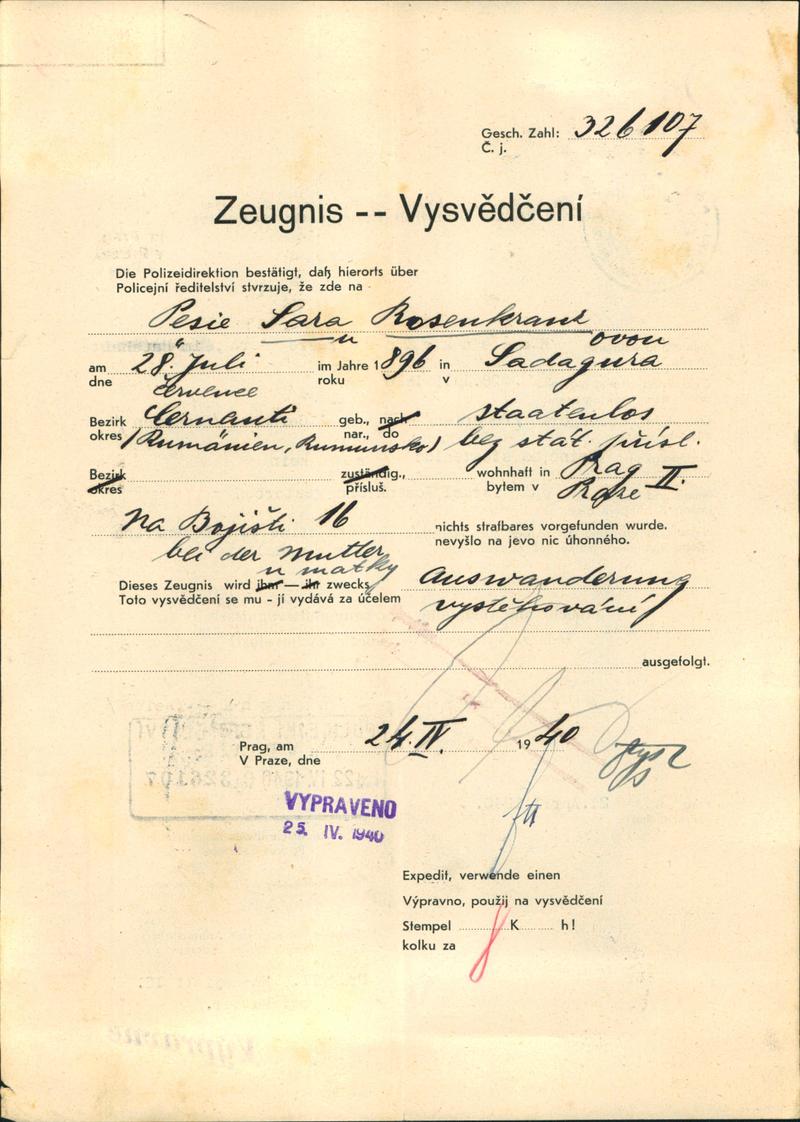 Gesch. Zahl: 326107
Č. j.
Zeugnis -- Vysvědčení
Die Polizeidirektion bestätigt, daß hierorts über
Policejní ředitelství stvrzuje, že zde na
Pesie Sara Rosenkranz
u ovou
am 28. Juli im Jahre 1896 in Sadagura
dne července roku v
Bezirk Cernauti geb., nach staatenlos
okres (Rumänien, Rumunsko) nar., do bez stát. přísl.
Bezirk zuständig., wohnhaft in Prag II.
okres přísluš. bytem v Praze
Na Bojišti 16 nichts strafbares vorgefunden wurde.
nevyšlo na jevo nic úhonného.
bei der Mutter
u matky
Dieses Zeugnis wird ihm — ihr zwecks Auswanderung
Toto vysvědčení se mu - jí vydává za účelem vystěhování
ausgefolgt.
Prag, am 24. IV. 1940
V Praze, dne
VYPRAVENO
25. IV. 1940
Expedit, verwende einen
Výpravno, použij na vysvědčení
Stempel K h!
kolku za